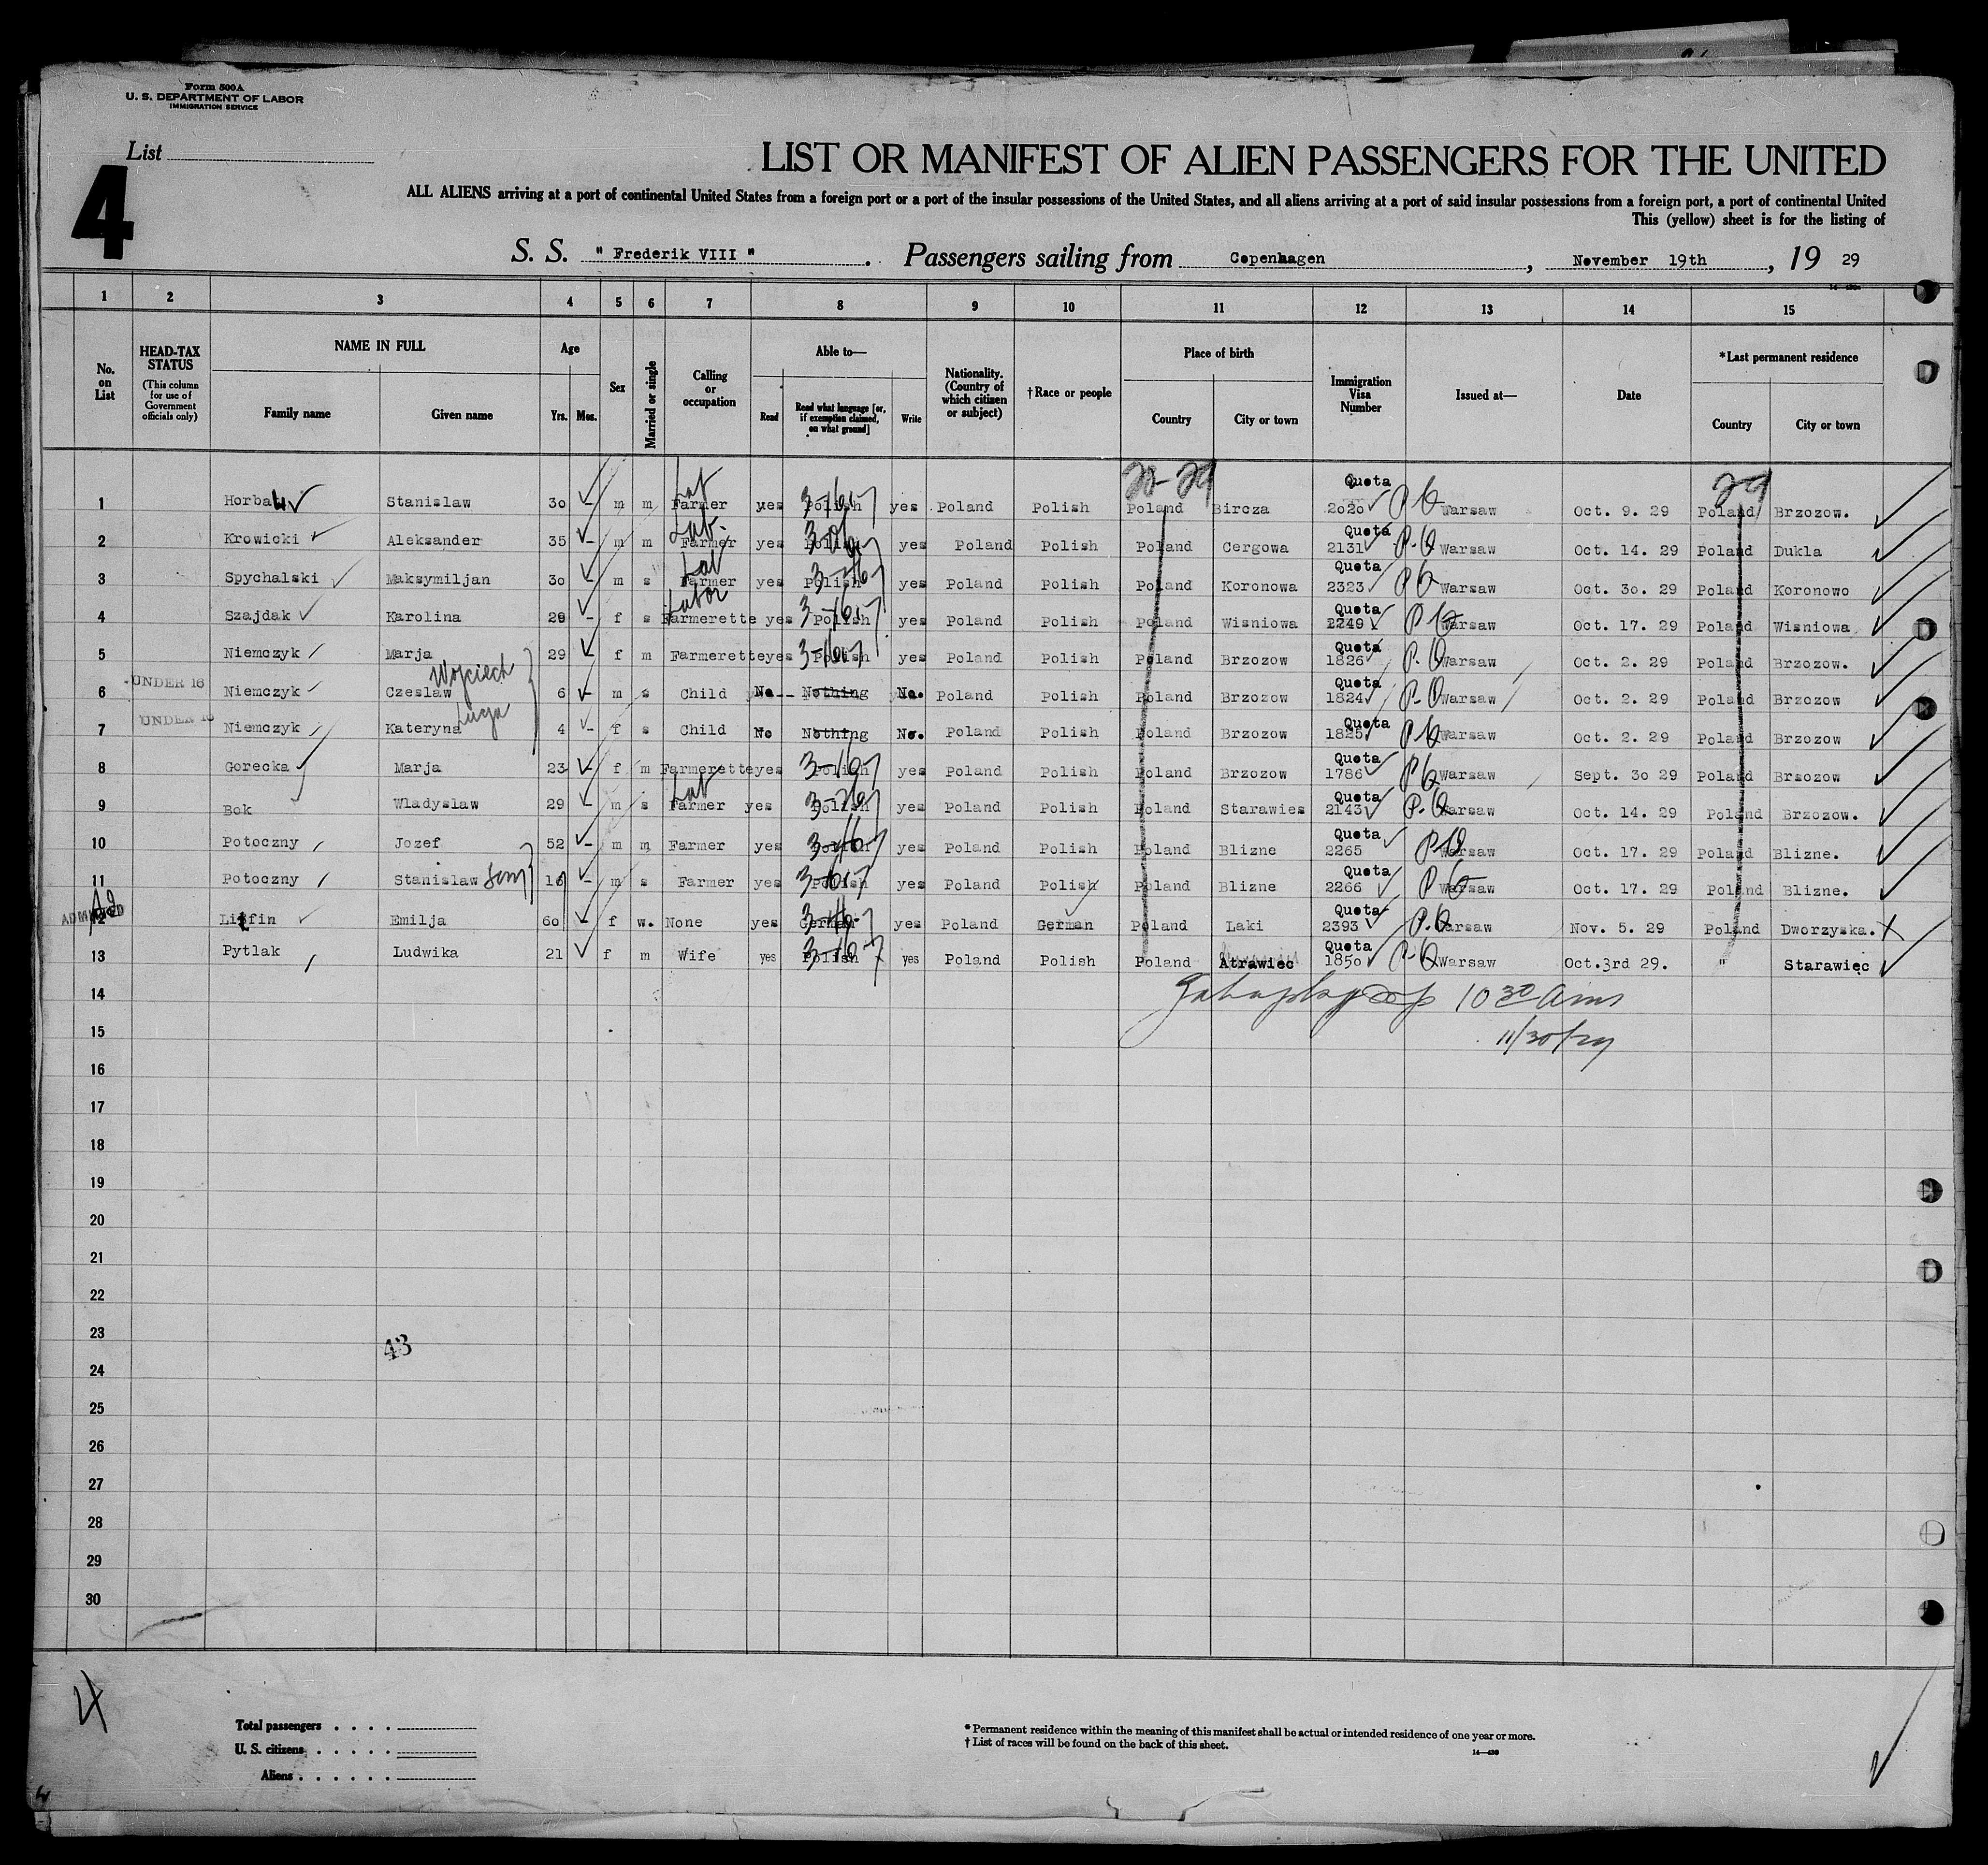 Form 500A
U. S. DEPARTMENT OF LABOR
IMMIGRATION SERVICE
List
4
LIST OR MANIFEST OF ALIEN PASSENGERS FOR THE UNITED
ALL ALIENS arriving at a port of continental United States from a foreign port or a port of the insular possessions of the United States, and all aliens arriving at a port of said insular possessions from a foreign port, a port of continental United
This (yellow) sheet is for the listing of
S. S. " Frederik VIII " . Passengers sailing from Copenhagen , November 19th , 19 29
1 2 3 4 5 6 7 8 9 10 11 12 13 14 15
No. on List HEAD-TAX STATUS (This column for use of Government officials only) NAME IN FULL Family name Given name Age Yrs. Mos. Sex Married or single Calling or occupation Able to— Read Read what language [or, if exemption claimed, on what ground] Write Nationality. (Country of which citizen or subject) †Race or people Place of birth Country City or town Immigration Visa Number Issued at— Date *Last permanent residence Country City or town
1 Stanislaw 30 - m m Lab Farmer yes Polish yes Poland Polish Poland Bircza Quota 2020 Warsaw Oct. 9. 29 Poland Brzozow.
2 Krowicki Aleksander 35 - m m Lab. Farmer yes Polish yes Poland Polish Poland Cergowa Quota 2131 Warsaw Oct. 14. 29 Poland Dukla
3 Spychalski Maksymiljan 30 - m s Lab Farmer yes Polish yes Poland Polish Poland Koronowa Quota 2323 Warsaw Oct. 30. 29 Poland Koronowo
4 Szajdak Karolina 29 - f s Labor Farmerette yes Polish yes Poland Polish Poland Wisniowa Quota 2249 Warsaw Oct. 17. 29 Poland Wisniowa
5 Niemczyk Marja 29 - f m Farmerette yes Polish yes Poland Polish Poland Brzozow Quota 1826 Warsaw Oct. 2. 29 Poland Brzozow.
UNDER 16 6 Niemczyk Czeslaw Wojciech 6 - m s Child No Nothing No. Poland Polish Poland Brzozow Quota 1824 Warsaw Oct. 2. 29 Poland Brzozow
UNDER 16 7 Niemczyk Kateryna 4 - f s Child No Nothing No. Poland Polish Poland Brzozow Quota 1825 Warsaw Oct. 2. 29 Poland Brzozow
8 Gorecka Marja 23 - f m Farmerette yes Polish yes Poland Polish Poland Brzozow Quota 1786 Warsaw Sept. 30 29 Poland Brsozow
9 Bok Wladyslaw 29 - m s Lab Farmer yes Polish yes Poland Polish Poland Starawies Quota 2143 Warsaw Oct. 14. 29 Poland Brzozow.
10 Potoczny Jozef 52 - m m Farmer yes Polish yes Poland Polish Poland Blizne Quota 2265 Warsaw Oct. 17. 29 Poland Blizne.
11 Potoczny Stanislaw Son 16 - m s Farmer yes Polish yes Poland Polish Poland Blizne Quota 2266 Warsaw Oct. 17. 29 Poland Blizne.
ADMITTED 12 Emilja 60 - f w. None yes German yes Poland German Poland Laki Quota 2393 Warsaw Nov. 5. 29 Poland Dworzyska.
13 Pytlak Ludwika 21 f m Wife yes Polish yes Poland Polish Poland Atrawiec Quota 1850 Warsaw Oct.3rd 29. " Starawiec
14 10 30 Am
15 11/30/29
16
17
18
19
20
21
22
23
43
24
25
26
27
28
29
30
4
Total passengers
U. S. citizens
Aliens
* Permanent residence within the meaning of this manifest shall be actual or intended residence of one year or more.
† List of races will be found on the back of this sheet.
14—430